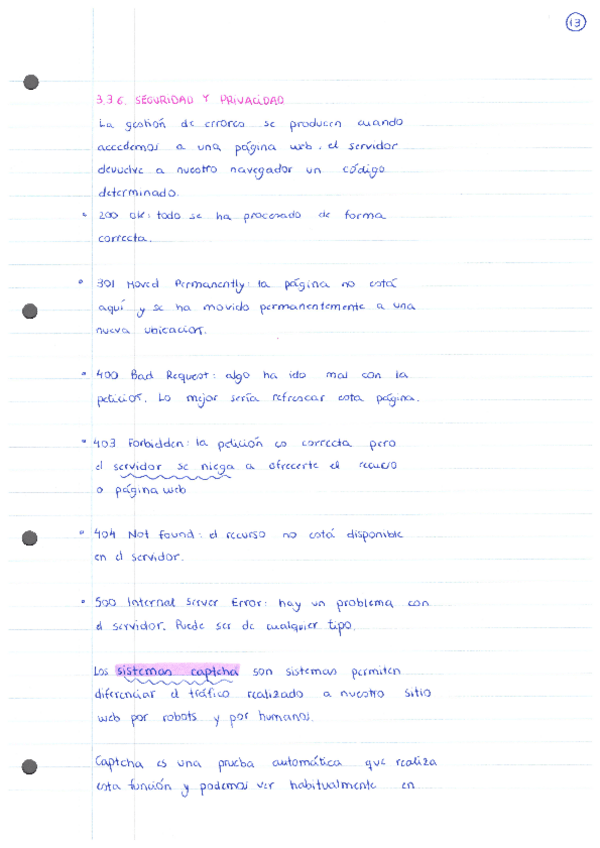 13
3.3.6. SEGURIDAD Y PRIVACIDAD
La gestión de errores se producen cuando
accedemos a una página web, el servidor
devuelve a nuestro navegador un código
determinado.
• 200 OK: todo se ha procesado de forma
correcta.
• 301 Moved Permanently: la página no está
aquí y se ha movido permanentemente a una
nueva ubicación.
• 400 Bad Request: algo ha ido mal con la
petición. Lo mejor sería refrescar esta página.
• 403 Forbidden: la petición es correcta pero
el servidor se niega a ofrecerte el recurso
o página web
• 404 Not found: el recurso no está disponible
en el servidor.
• 500 Internal Server Error: hay un problema con
el servidor. Puede ser de cualquier tipo.
Los sistemas captcha son sistemas permiten
diferenciar el tráfico realizado a nuestro sitio
web por robots y por humanos.
Captcha es una prueba automática que realiza
esta función y podemos ver habitualmente en